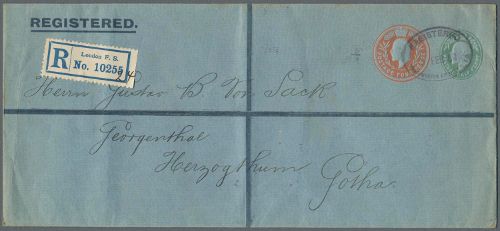 REGISTERED.
London F. S.
R No. 10255
24
Herrn Gustav B. Von Sack
Georgenthal
Herzogthum
Gotha.
REGISTERED